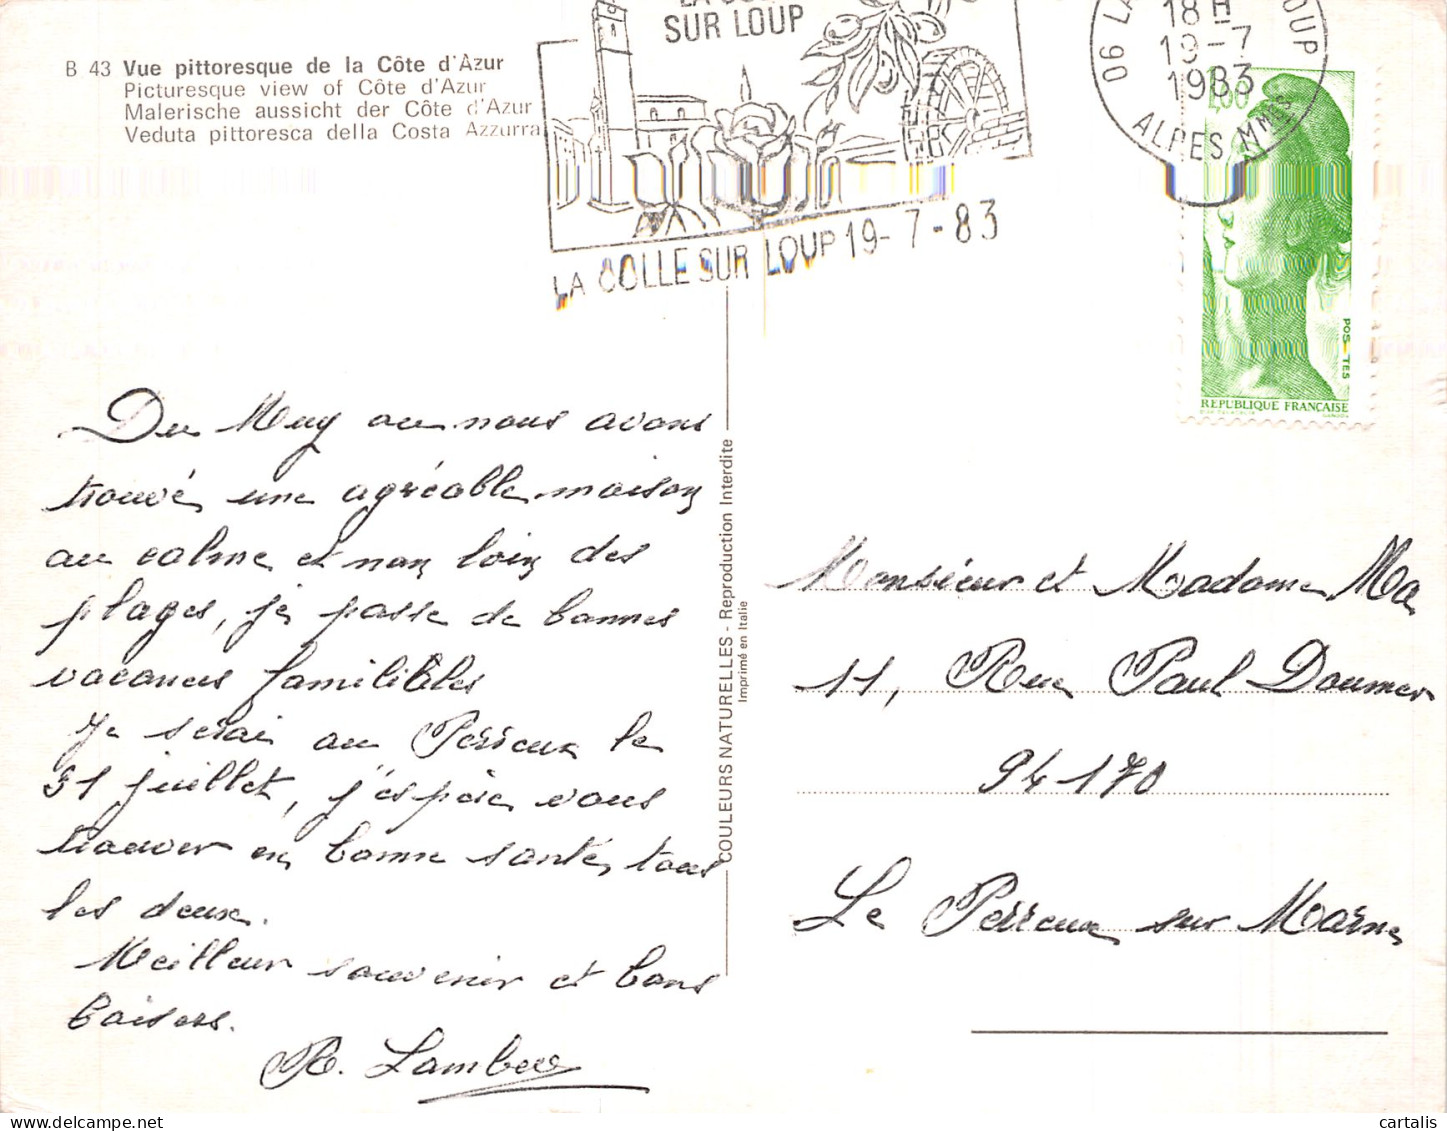 B 43 Vue pittoresque de la Côte d'Azur
Picturesque view of Côte d'Azur
Malerische aussicht der Côte d'Azur
Veduta pittoresca della Costa Azzurra
SUR LOUP
LA COLLE SUR LOUP 19-7-83
06 LA
LOUP
18H
19-7
1983
ALPES MMES
1,60
POSTES
REPUBLIQUE FRANÇAISE
Du Muy ou nous avons
trouvé une agréable maison
au calme et non loin des
plages, je passe de bonnes
vacances familiales
Je serai au Perreux le
31 juillet, j'espère vous
trouver en bonne santé, tous
les deux.
Meilleur souvenir et bons
baisers.
R. Lambert
COULEURS NATURELLES - Reproduction Interdite
Imprimé en Italie
Monsieur et Madame Ma
11, Rue Paul Doumer
94170
Le Perreux sur Marne
cartalis